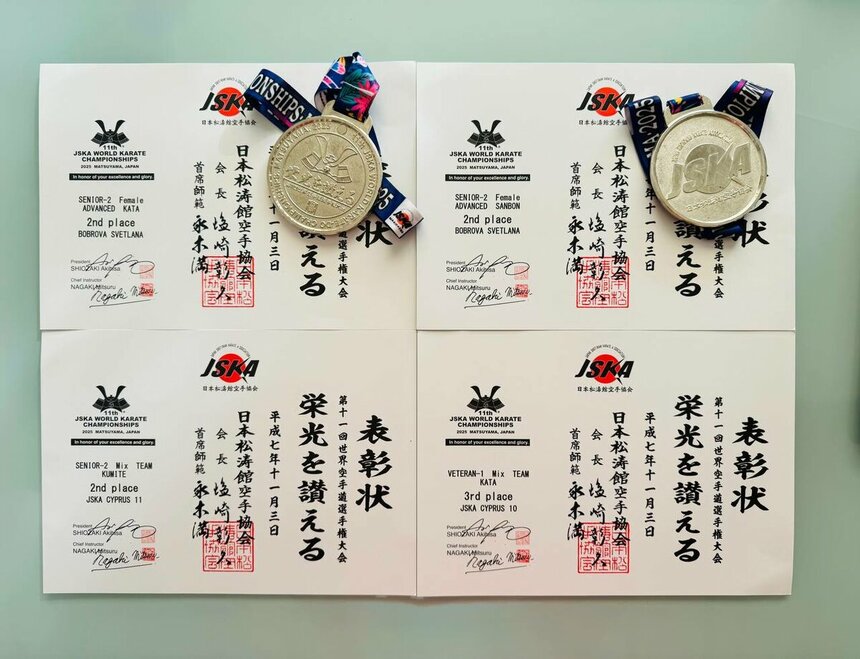 ONSHIPS
JSKA
日本松涛館空手協会
11th
JSKA WORLD KARATE
CHAMPIONSHIPS
2025 MATSUYAMA, JAPAN
In honor of your excellence and glory.
SENIOR-2 Female
ADVANCED KATA
2nd place
BOBROVA SVETLANA
President
SHIOZAKI Akihisa
Chief Instructor
NAGAKI Mitsuru
Nagaki Mitsuru
状
道選手権大会
讃える
十一月三日
日本松涛館空手協会
会長 塩崎彰久
首席師範 永木満
MPIO
2025
JSKA
JSKA
日本松涛館空手協会
11th
JSKA WORLD KARATE
CHAMPIONSHIPS
2025 MATSUYAMA, JAPAN
In honor of your excellence and glory.
SENIOR-2 Female
ADVANCED SANBON
2nd place
BOBROVA SVETLANA
President
SHIOZAKI Akihisa
Chief Instructor
NAGAKI Mitsuru
Nagaki Mitsuru
彰状
道選手権大会
讃える
十一月三日
日本松涛館空手協会
会長 塩崎彰久
首席師範 永木満
JSKA
日本松涛館空手協会
11th
JSKA WORLD KARATE
CHAMPIONSHIPS
2025 MATSUYAMA, JAPAN
In honor of your excellence and glory.
SENIOR-2 Mix TEAM
KUMITE
2nd place
JSKA CYPRUS 11
President
SHIOZAKI Akihisa
Chief Instructor
NAGAKI Mitsuru
Nagaki Mitsuru
表彰状
第十一回世界空手道選手権大会
栄光を讃える
平成七年十一月三日
日本松涛館空手協会
会長 塩崎彰久
首席師範 永木満
JSKA
日本松涛館空手協会
11th
JSKA WORLD KARATE
CHAMPIONSHIPS
2025 MATSUYAMA, JAPAN
In honor of your excellence and glory.
VETERAN-1 Mix TEAM
KATA
3rd place
JSKA CYPRUS 10
President
SHIOZAKI Akihisa
Chief Instructor
NAGAKI Mitsuru
Nagaki Mitsuru
表彰状
第十一回世界空手道選手権大会
栄光を讃える
平成七年十一月三日
日本松涛館空手協会
会長 塩崎彰久
首席師範 永木満